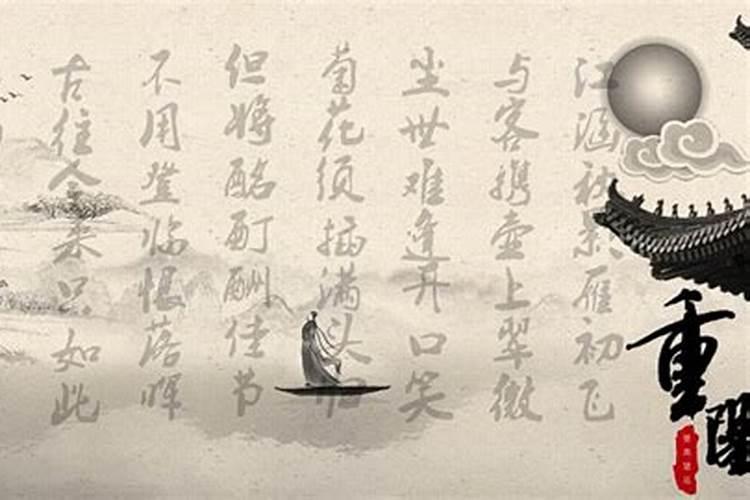 重
江涵秋影雁初飞
与客携壶上翠微
尘世难逢开口笑
菊花须插满头归
但将酩酊酬佳节
不用登临恨落晖
古往今来只如此